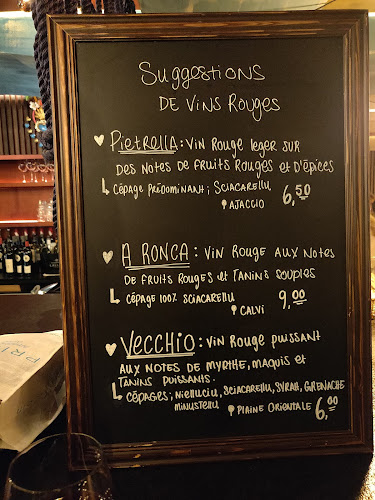 Suggestions
DE Vins Rouges
Pietrella : Vin Rouge leger sur
des notes de fruits rouges et d'épices
Cépage prédominant ; Sciacarellu
6,50
Ajaccio
A Ronca : Vin Rouge aux notes
de fruits rouges et tanins souples
Cépage 100% Sciacarellu
9,00
Calvi
Vecchio : Vin Rouge puissant
aux notes de myrthe, maquis et
tanins puissants.
Cépages ; Nielluciu, Sciacarellu, Syrah, Grenache
minustellu
Plaine Orientale 6,00